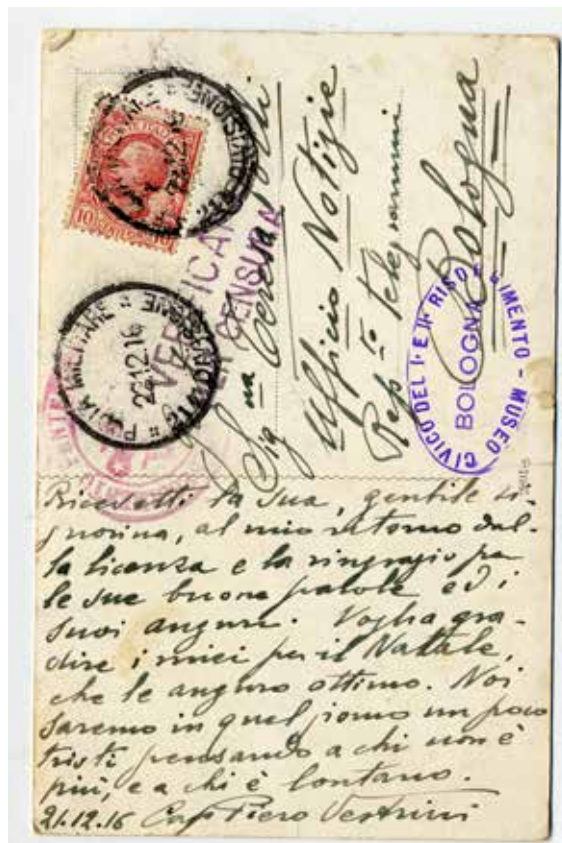 POSTA MILITARE
22.12.16
DIVISIONE
10
VERIFICA
PER CENSURA
Sig.na Teresa
Ufficio Notizie
Rep.to Telegrammi
Bologna
MUSEO CIVICO DEL I· E II· RISORGIMENTO -
BOLOGNA
Ricevetti la sua, gentile si-
gnorina, al mio ritorno dal-
la licenza e la ringrazio per
le sue buone parole ed i
suoi auguri. Voglia gra-
dire i miei per il Natale,
che le auguro ottimo. Noi
saremo in quel giorno un poco
tristi pensando a chi non è
più, e a chi è lontano.
21.12.16 Cap Piero Vestrini